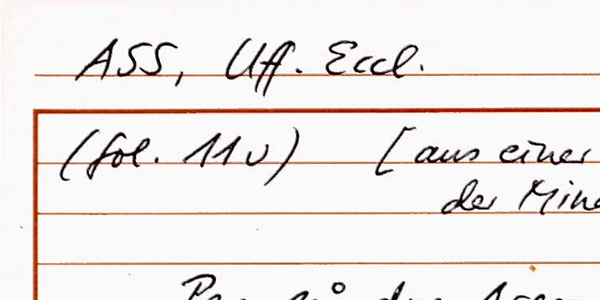 ASS, Uff. Eccl.
(fol. 11v) [aus einer
der